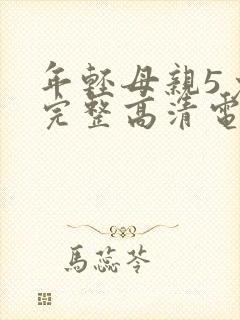 年輕母親5
完整高清電
馬蕊苓